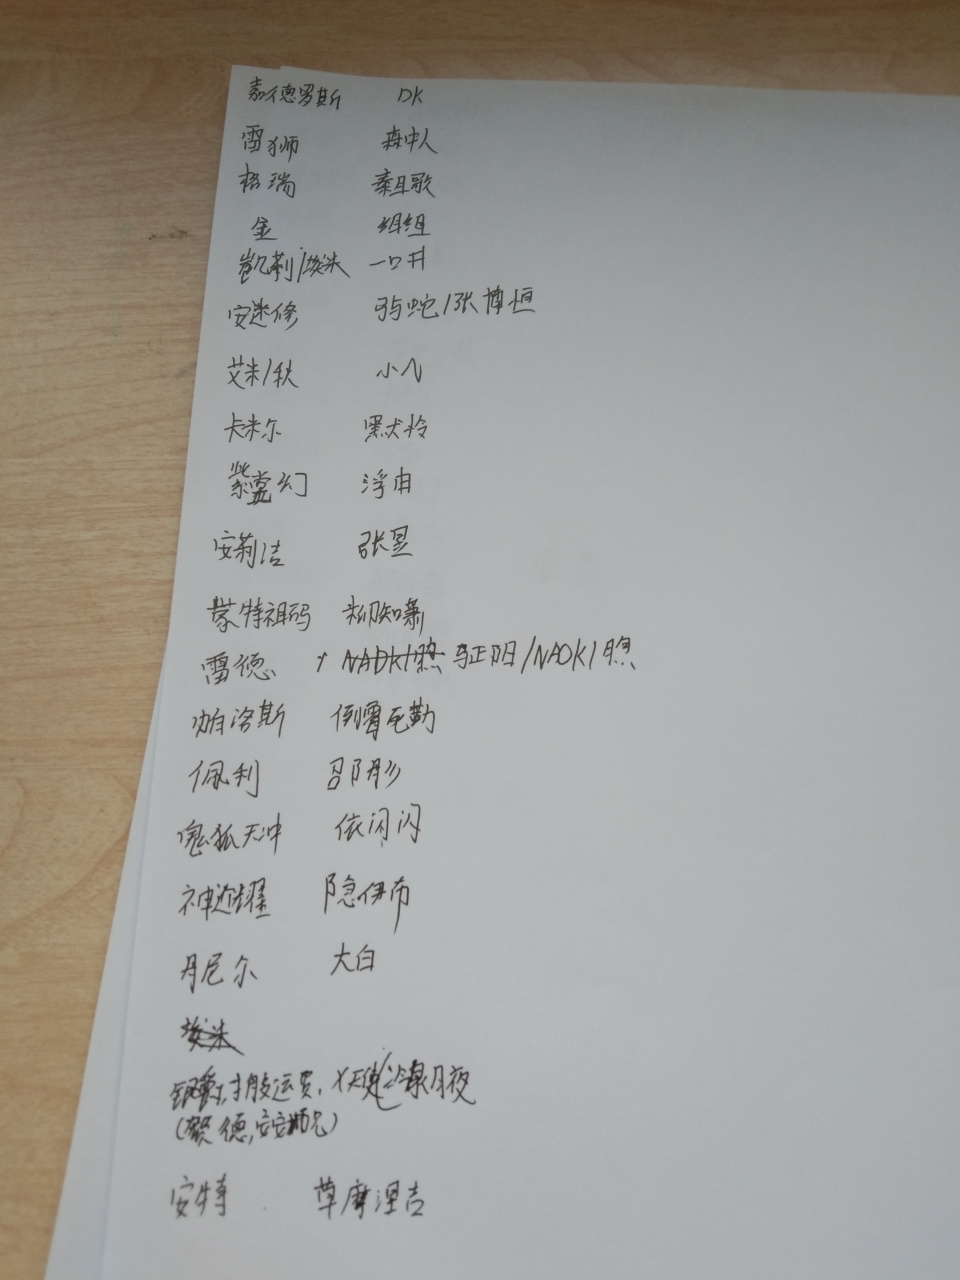 嘉德罗斯 DK
雷狮 森中人
格瑞 秦且歌
金 组组
凯莉/埃米 一口井
安迷修 弱蛇/张博恒
艾米/秋 小八
卡米尔 黑犬怜
紫堂幻 浮由
安莉洁 张昱
蒙特祖玛 柳知萧
雷德 马正阳/NAOKI照
帕洛斯 倒霉死勒
佩利 邵彤
鬼狐天冲 依闪闪
神近耀 隐伊布
丹尼尔 大白
银爵 月夜
安特 草摩涅吉